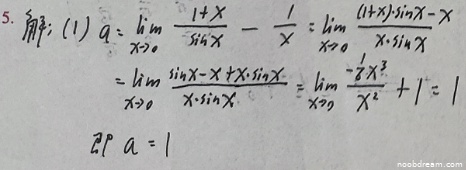 5. 解: (1) a = lim_{x→0} (1+x)/(sinx) - 1/x = lim_{x→0} ((1+x)·sinx-x)/(x·sinx)
= lim_{x→0} (sinx-x+x·sinx)/(x·sinx) = lim_{x→0} (-1/6 x^3)/(x^2) + 1 = 1
即 a = 1
noobdream.com